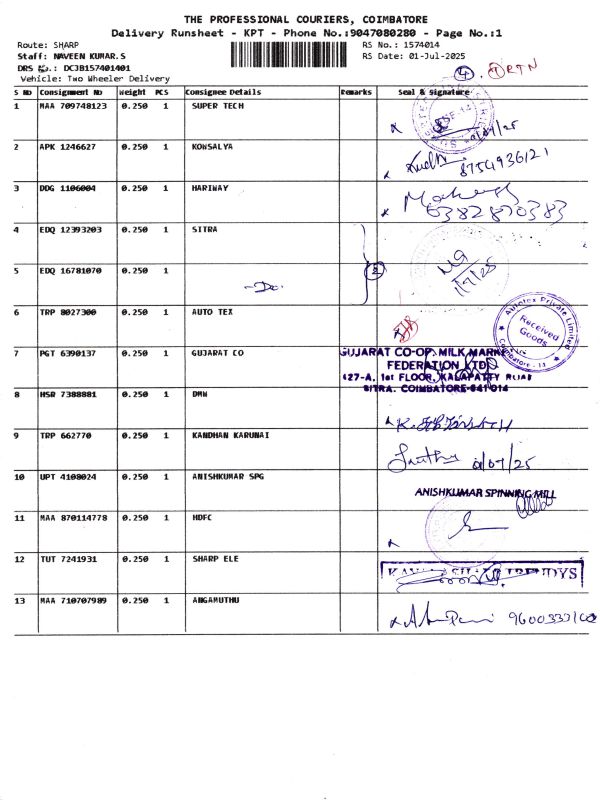 THE PROFESSIONAL COURIERS, COIMBATORE
Delivery Runsheet - KPT - Phone No.:9047080280 - Page No.:1
Route: SHARP RS No.: 1574014
Staff: NAVEEN KUMAR.S RS Date: 01-Jul-2025
DRS No.: DCJB157401401
Vehicle: Two Wheeler Delivery
4 1 RTN
S No Consignment No Weight PCS Consignee Details Remarks Seal & Signature
1 MAA 709748123 0.250 1 SUPER TECH
2 APK 1246627 0.250 1 KONSALYA 8754936121
3 DDG 1106004 0.250 1 HARIWAY 6382870383
4 EDQ 12393203 0.250 1 SITRA
5 EDQ 16781070 0.250 1 -Do- 2 1/7/25
6 TRP 8027300 0.250 1 AUTO TEX Autotex Private Limited Received Goods Coimbatore - 14
7 PGT 6390137 0.250 1 GUJARAT CO GUJARAT CO-OP. MILK MARK
FEDERATION LTD
427-A, 1st FLOOR, KALAPATTY ROAD
SITRA, COIMBATORE-641 014
8 HSR 7388881 0.250 1 DMW
9 TRP 662770 0.250 1 KANDHAN KARUNAI 01/07/25
10 UPT 4108024 0.250 1 ANISHKUMAR SPG ANISHKUMAR SPINNING MILL
11 MAA 870114778 0.250 1 HDFC
12 TUT 7241931 0.250 1 SHARP ELE
13 MAA 710707989 0.250 1 ANGAMUTHU